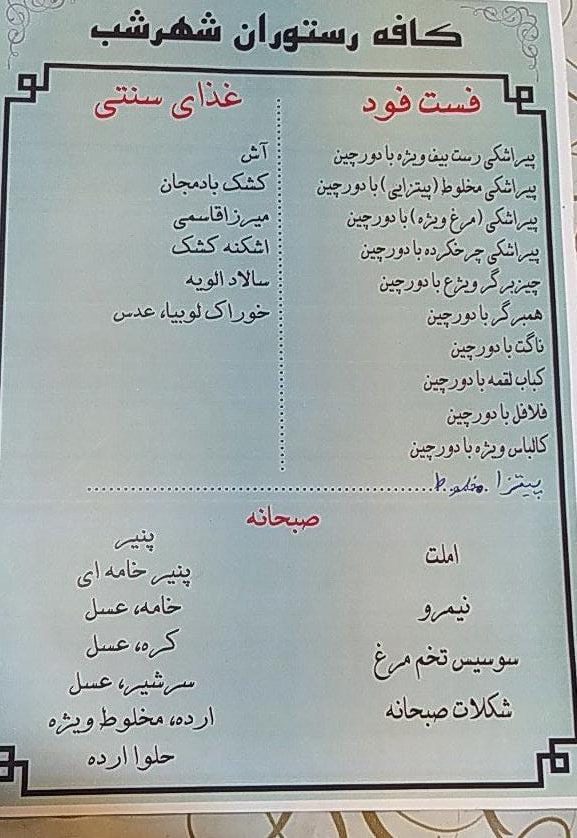 کافه رستوران شهرشب
فست فود
پیراشکی رست بیف ویژه با دورچین
پیراشکی مخلوط (پیتزایی) با دورچین
پیراشکی (مرغ ویژه) با دورچین
پیراشکی چرخکرده با دورچین
چیزبرگر ویژع با دورچین
همبرگر با دورچین
ناگت با دورچین
کباب لقمه با دورچین
فلافل با دورچین
کالباس ویژه با دورچین
پیتزا مخلوط
غذای سنتی
آش
کشک بادمجان
میرزاقاسمی
اشکنه کشک
سالاد الویه
خوراک لوبیا، عدس
صبحانه
املت
نیمرو
سوسیس تخم مرغ
شکلات صبحانه
پنیر
پنیر خامه ای
خامه، عسل
کره، عسل
سرشیر، عسل
ارده، مخلوط ویژه
حلوا ارده